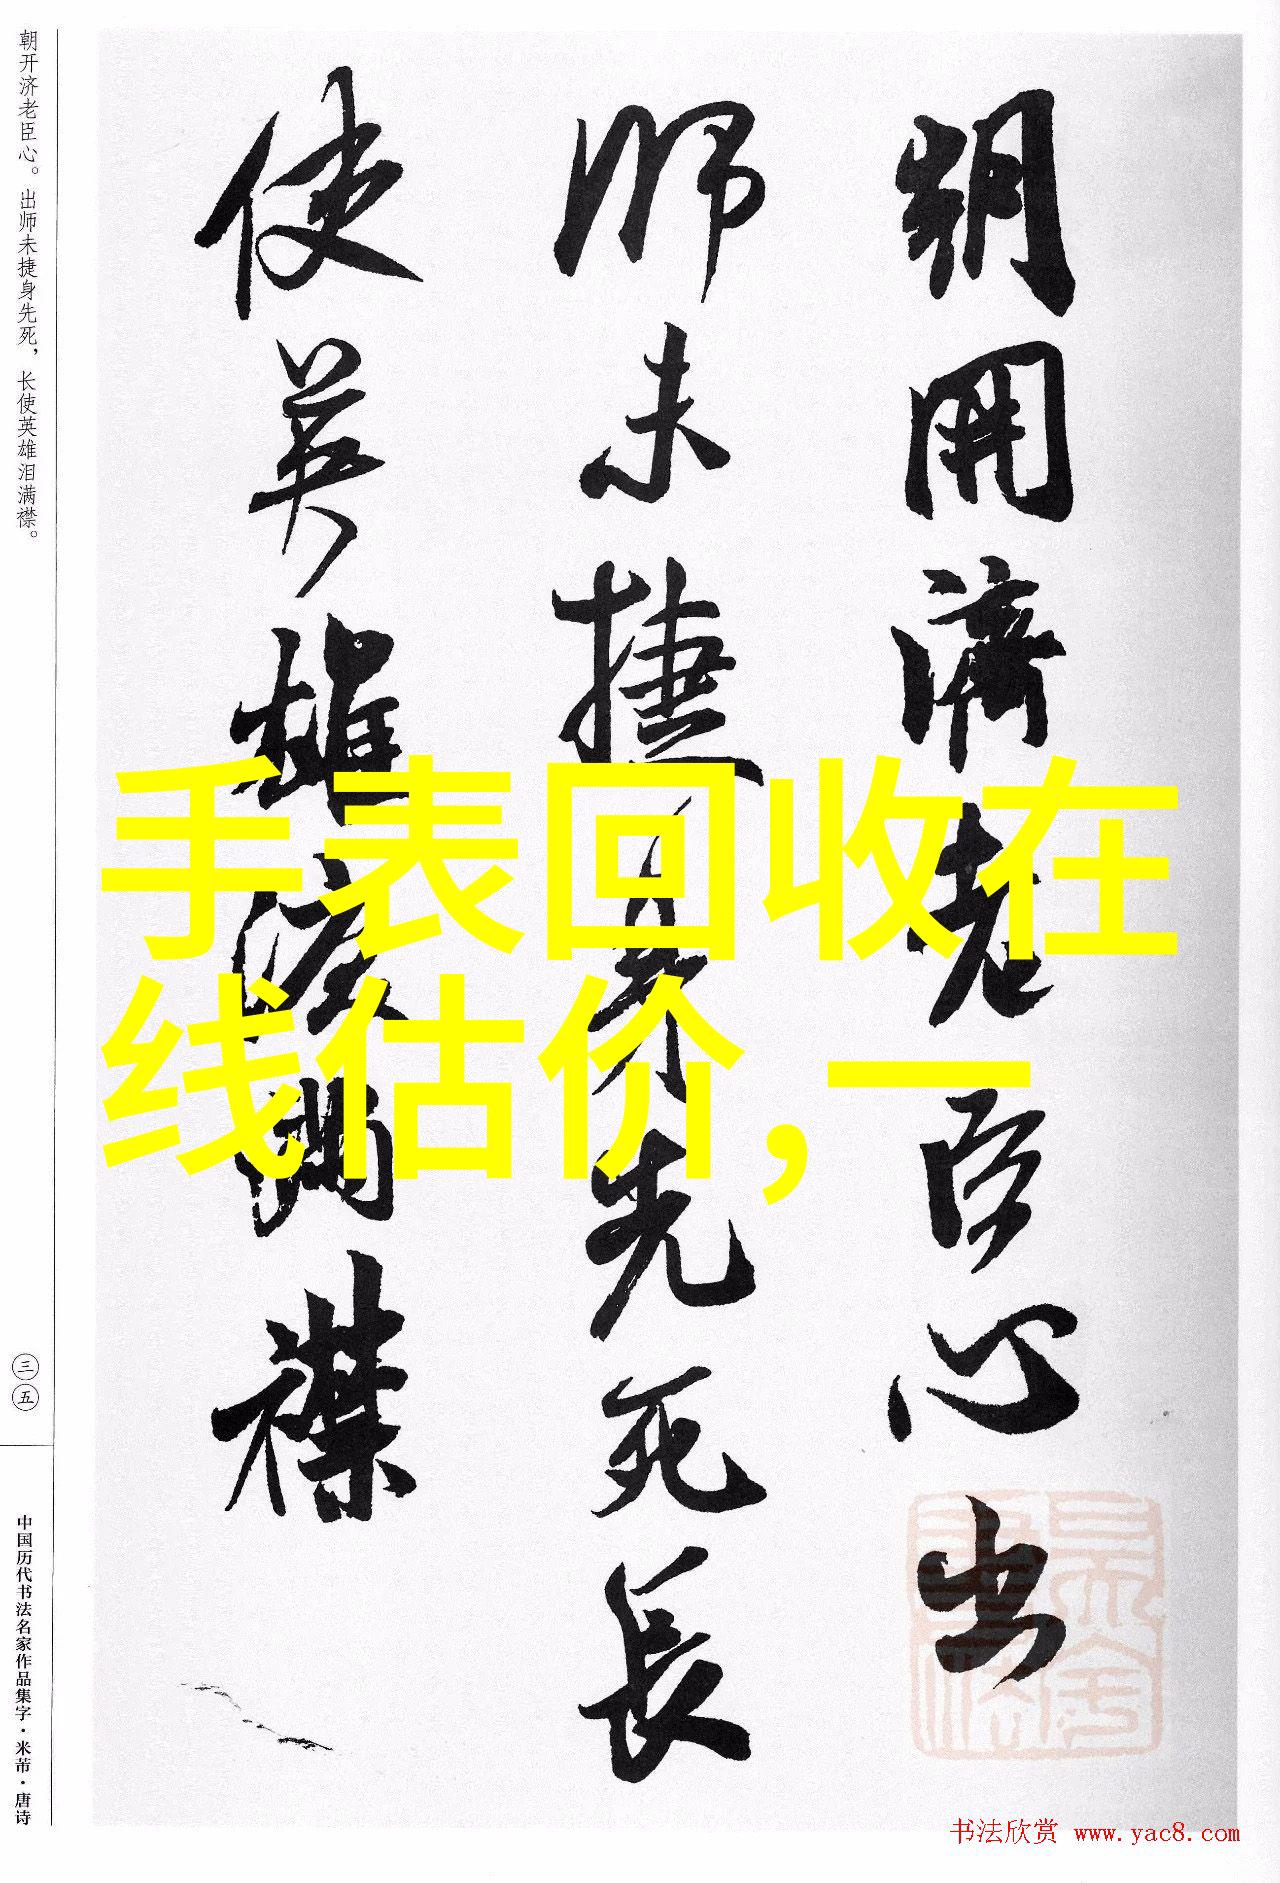 朝開濟老臣心出
師未捷身先死長
使英雄淚滿襟
手表回收在
线估价,一
朝开济老臣心。出师未捷身先死，长使英雄泪满襟。
三五
中国历代书法名家作品集字·米芾·唐诗
书法欣赏 www.yac8.com